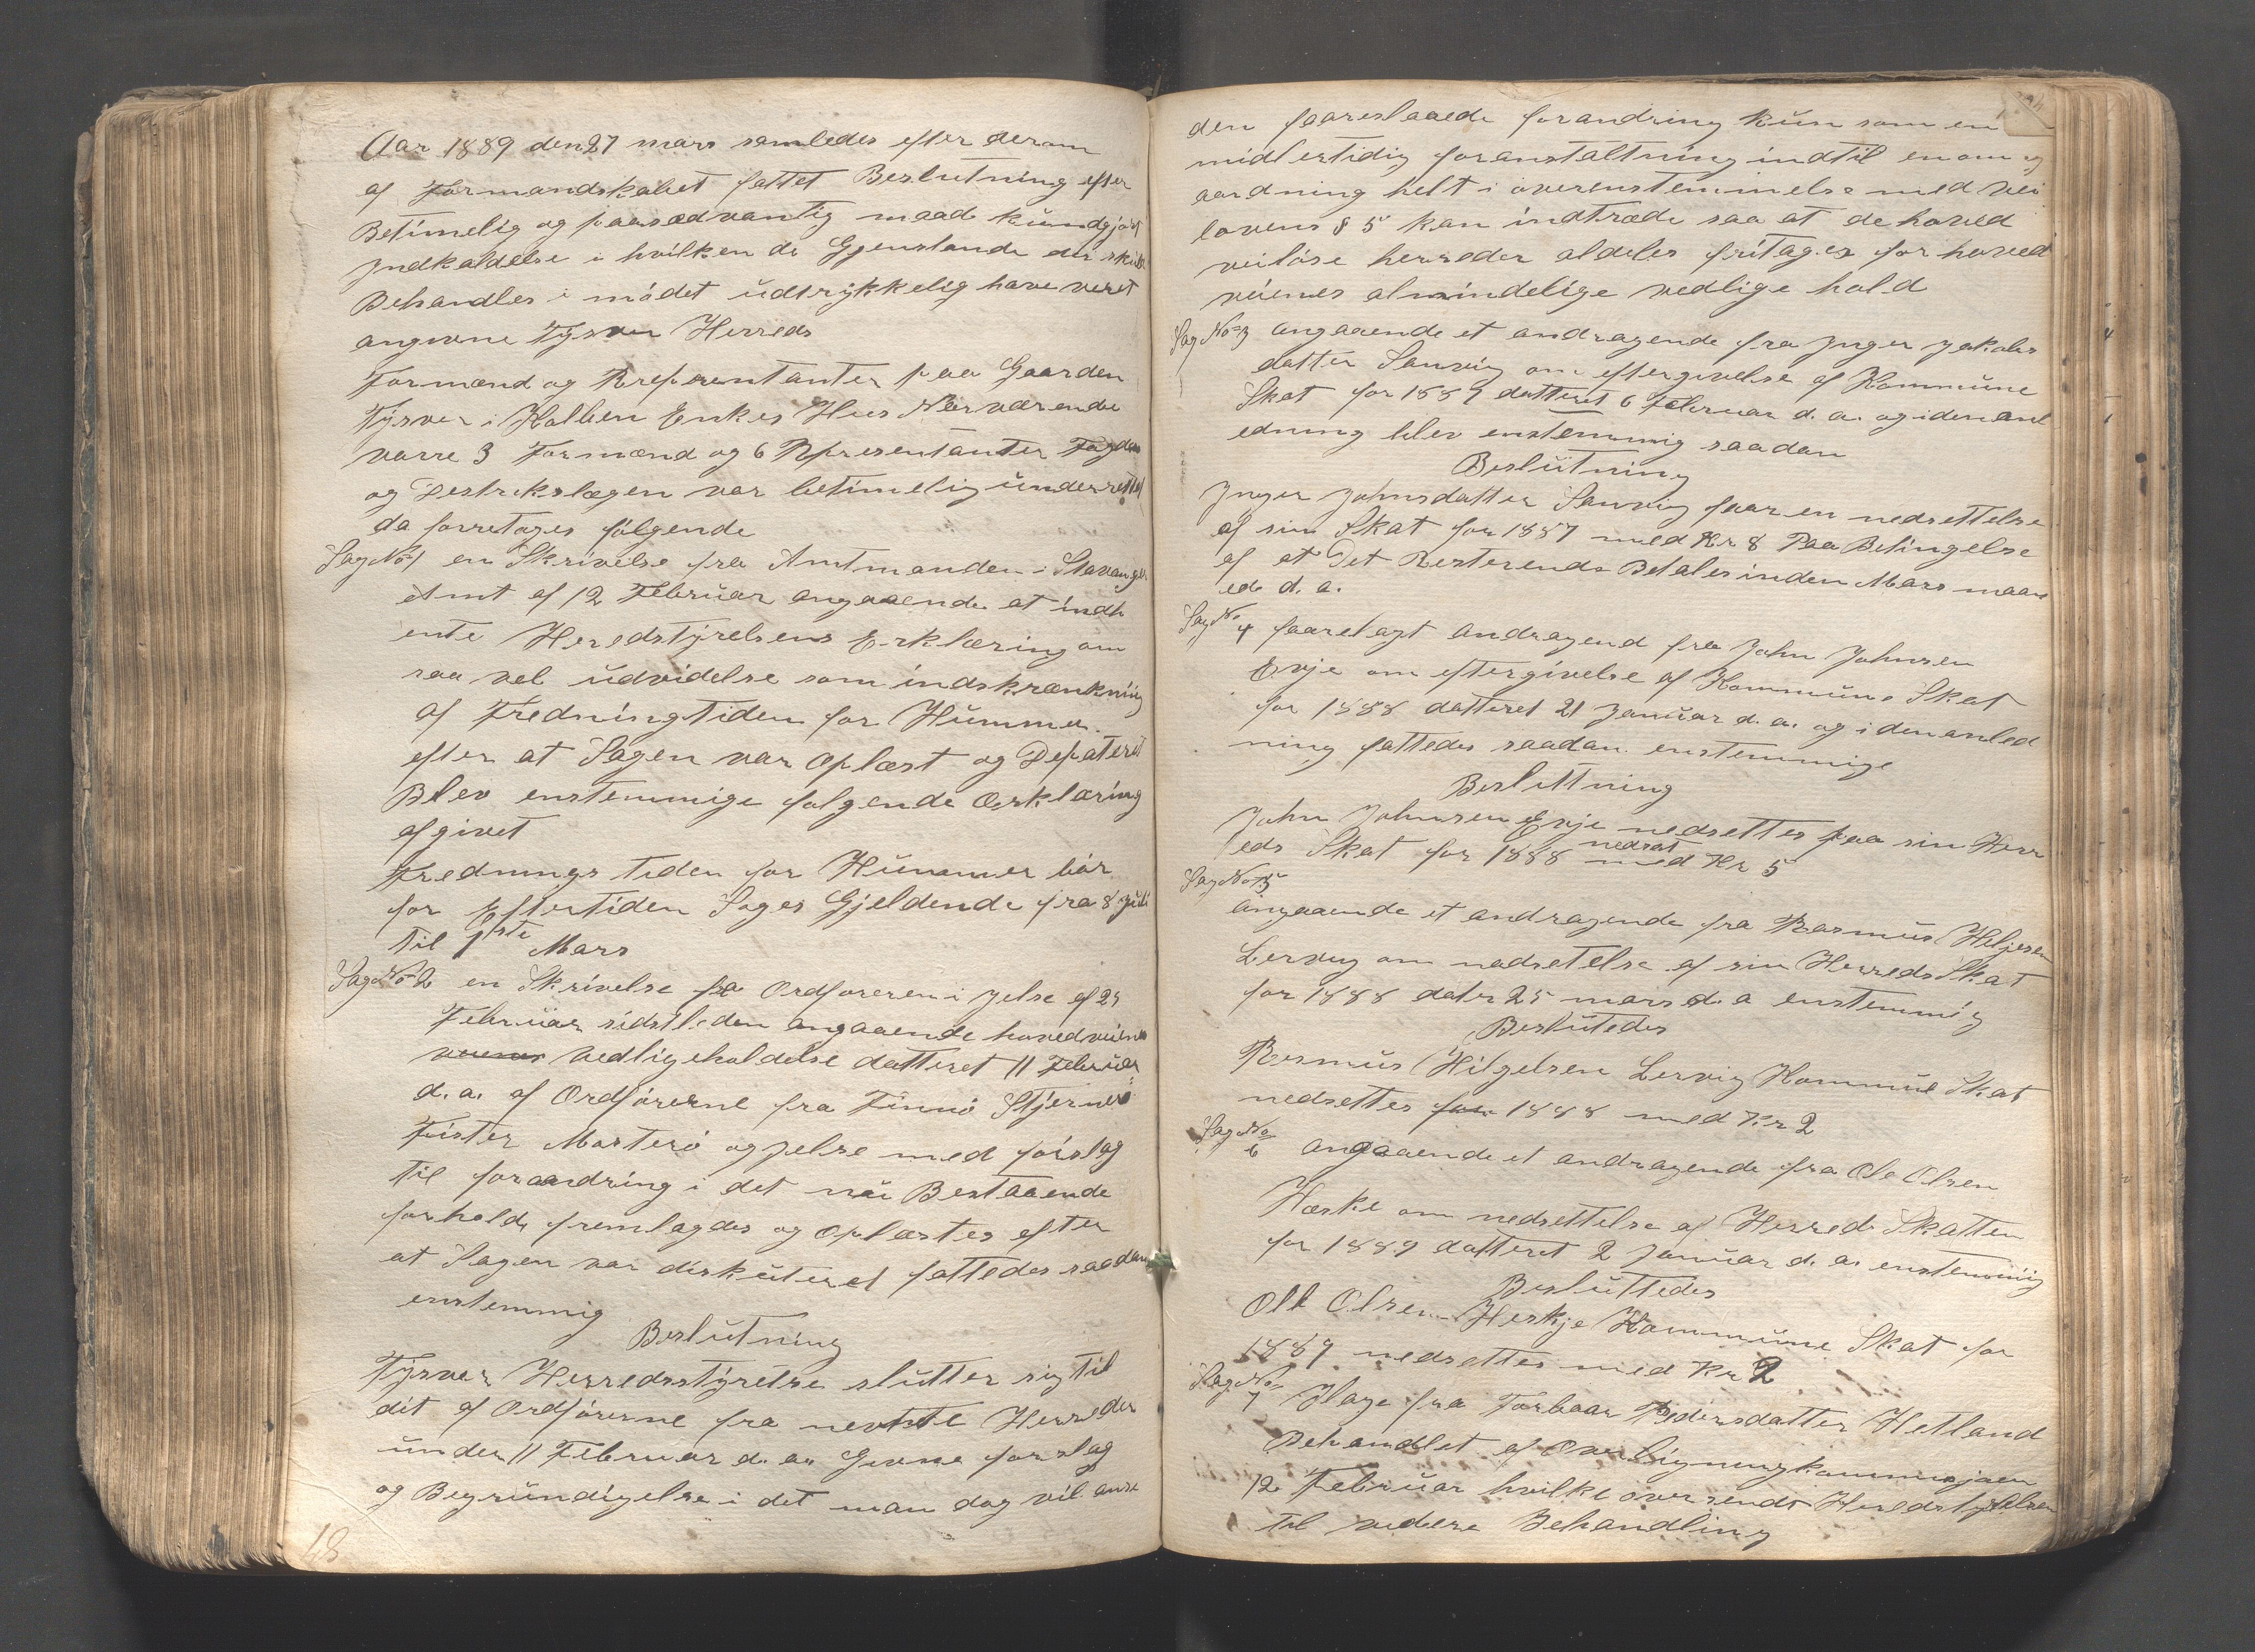 Aar 1889 den 27 mars samledes efter derom
af Formandskabet fattet Beslutning efter
Betimelig og paasædvanlig maade kundgjort
Indkaldelse i hvilken de Gjenstande der skulle
Behandles i mødet udtrykkelig have veret
angivne Tysvær Herreds
Formænd og Repræsentanter paa Gaarden
Tysver i Kolben Enkes Hus Nærværende
varre 3 Formænd og 6 Represententer Fogden
og Destrikslægen var betimelig underrettet
da forretoges følgende
Sag No 1 en Skrivelse fra Amtmanden i Stavanger
Amt af 12 Februar angaaende at indh
ente Heredstyrelsens Erklæring om
saa vel udvidelse som indskrænkning
af Fredningtiden for Hummer.
efter at Sagen var oplæst og Depateret
Blev enstemmige følgende Erklæring
afgivet
Frednings tiden for Hummer bør
for Eftertiden Sages Gjeldende fra 8 juli
til 1ste Mars
Sag No 2 en Skrivelse fra Ordføreren i Jelse af 25
Februar sidstleden angaaende hovedveienes
veienes vedligeholdelse datteret 11 Februar
d. a. af Ordførerne fra Finnø Stjernerø
Fister Mosterø og jelse med forslag
til foraandring i det nu Bestaaende
forhold, fremlagdes og oplæstes efter
at Sagen var diskuteret fattedes saadan
enstemmig
Beslutning
Tysver Herredsstyrelse slutter sig til
dit af Ordførerne fra nevnte Herreder
under 11 Februar d. a. Givne forslag
og Begrundigelse i det man dog vil anse
48
den faareslaaede forandring kun som en
midlertidig foranstaltning indtil en om og
aardning helt i overenstemmelse med vei
lovens § 5 kan indtræde saa at de hoved
veiløse herreder aldeles fritages for hoved
veienes almindelige vedlige hold
Sag No 3 angaaende et andragende fra Inger Jakobs
datter Sanvig om eftergivelse af Kommune
Skat for 1887 datteret 6 Februar d. a. og i den anl
edning blev enstemmig saadan
Beslutning
Inger Johnsdatter Sanvig faar en nedsettelse
af sin Skat for 1887 med Kr 8 Paa Betingelse
af at Det Resterende Betales inden Mars maan
ed d. a.
Sag No 4 faarelagt andragend fra John Johnsen
Evje om eftergivelse af Kommune Skat
for 1888 datteret 21 Januar d. a. og i den anled
ning fattedes saadan enstemmige
Beslutning
John Johnsen Evje nedsettes paa sin Herr
eds Skat for 1888 nedsat med Kr 5
Sag No 5
angaaende et andragende fra Rasmus Helgesen
Lervig om nedsetelse af sin Herreds Skat
for 1888 datr 25 mars d. a enstemmig
Beslutedes
Rasmus Hilgelsen Lervig Kommune Skat
nedsettes for 1888 med Kr 2
Sag No 6 angaaende et andragende fra Ole Olsen
Hæske om nedsettelse af Herreds Skatten
for 1889 datteret 2 Januar d. a. enstemmig
Besluttedes
Ole Olsen Heskje Kommune Skat for
1889 nedsettes med Kr 2
Sag No 7 Klage fra Torbaar Pedersdatter Hetland
Behandlet af Overligningskommisjoen
12 Februar hvilke oversendt Heredstyrelsen
til videre Behandling